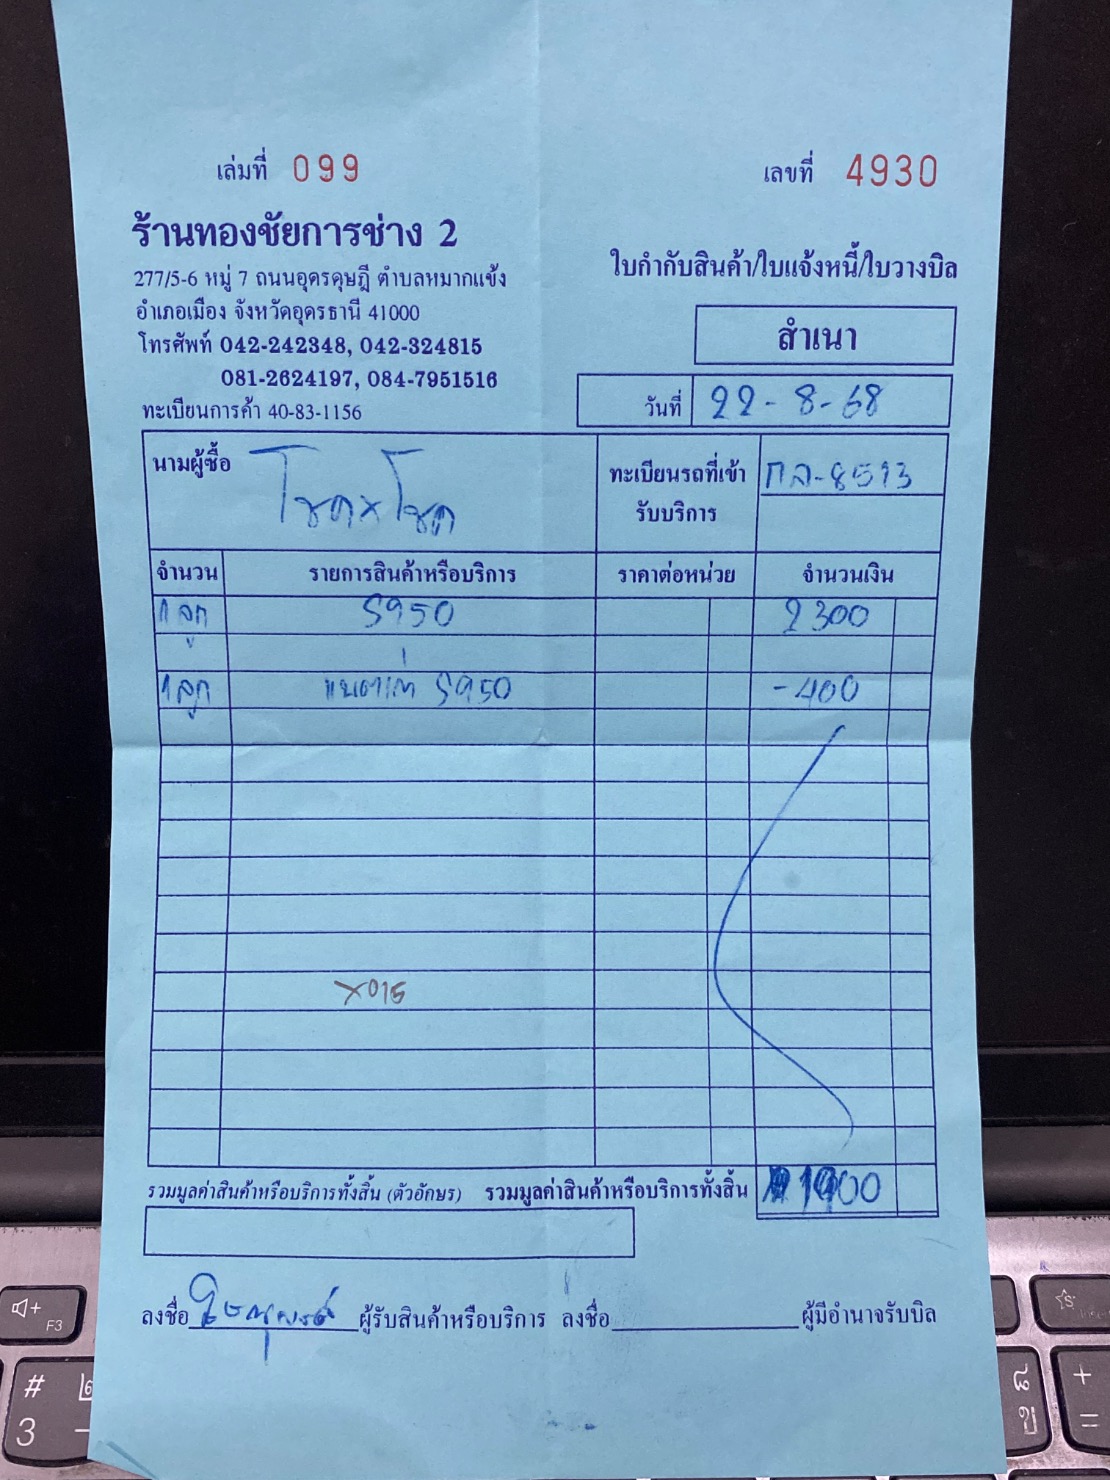 เล่มที่ 099 เลขที่ 4930
ร้านทองชัยการช่าง 2
277/5-6 หมู่ 7 ถนนอุดรดุษฎี ตำบลหมากแข้ง
อำเภอเมือง จังหวัดอุดรธานี 41000
โทรศัพท์ 042-242348, 042-324815
081-2624197, 084-7951516
ทะเบียนการค้า 40-83-1156
ใบกำกับสินค้า/ใบแจ้งหนี้/ใบวางบิล
สำเนา
วันที่ 22-8-68
นามผู้ซื้อ โชคxโชค ทะเบียนรถที่เข้ารับบริการ กล-8513
จำนวน รายการสินค้าหรือบริการ ราคาต่อหน่วย จำนวนเงิน
1 ลูก S950 2300
1 ลูก แบตเก่า S950 -400
X015
รวมมูลค่าสินค้าหรือบริการทั้งสิ้น (ตัวอักษร) รวมมูลค่าสินค้าหรือบริการทั้งสิ้น 1900
ลงชื่อ ผู้รับสินค้าหรือบริการ ลงชื่อ ผู้มีอำนาจรับบิล
F3
# ๒
3 -
๘
ข
+
=